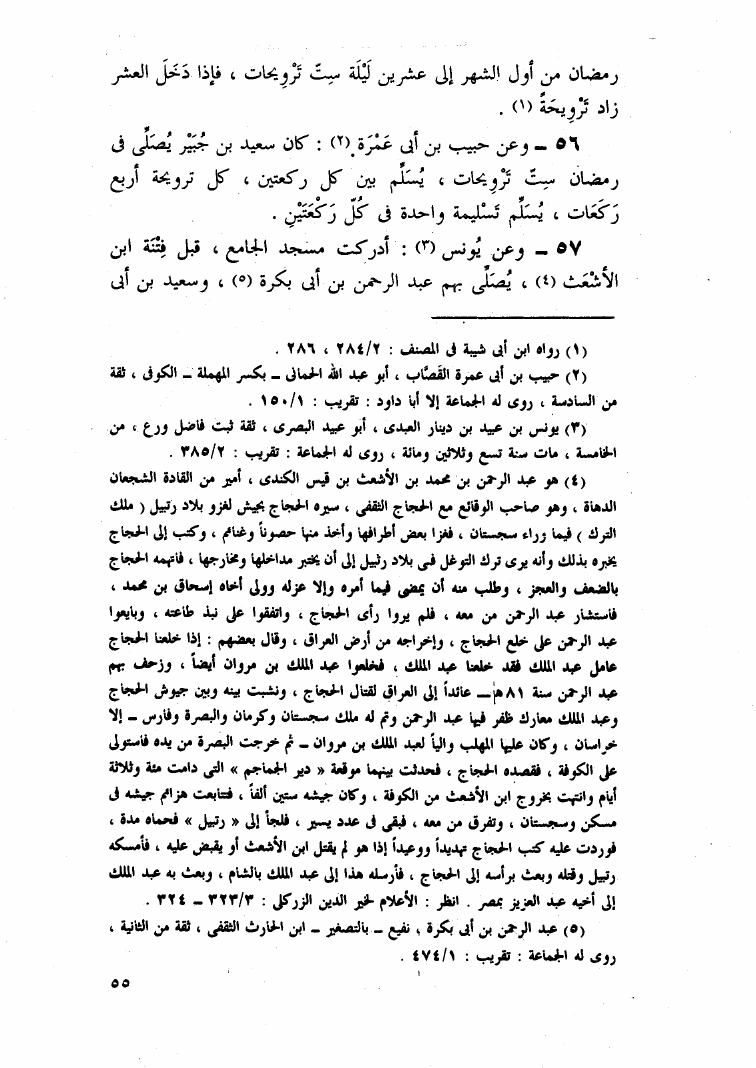 رمضان من أول الشهر إلى عشرين لَيْلَة سِتّ تَرْوِيحات ، فإذا دَخَلَ العشر
زاد تَرْوِيحَةً (١) .
٥٦ ــ وعن حبيب بن أبى عَمْرَة (٢) : كان سعيد بن جُبَيْر يُصَلِّى فى
رمضان سِتّ تَرْوِيحات ، يُسَلِّم بين كل ركعتين ، كل ترويحة أربع
رَكَعَات ، يُسَلِّم تَسْليمة واحدة فى كُلّ رَكْعَتَيْنِ .
٥٧ ــ وعن يُونس (٣) : أدركت مسجد الجامع ، قبل فِتْنَة ابن
الأشْعَث (٤) ، يُصَلِّى بهم عبد الرحمن بن أبى بكرة (٥) ، وسعيد بن أبى
(١) رواه ابن أبى شيبة فى المصنف : ٢٨٤/٢ ، ٢٨٦ .
(٢) حبيب بن أبى عمرة القَصَّاب ، أبو عبد الله الحمانى ــ بكسر المهملة ــ الكوفى ، ثقة
من السادسة ، روى له الجماعة إلا أبا داود : تقريب : ١٥٠/١ .
(٣) يونس بن عبيد بن دينار العبدى ، أبو عبيد البصرى ، ثقة ثبت فاضل ورع ، من
الخامسة ، مات سنة تسع وثلاثين ومائة ، روى له الجماعة : تقريب : ٣٨٥/٢ .
(٤) هو عبد الرحمن بن محمد بن الأشعث بن قيس الكندى ، أمير من القادة الشجعان
الدهاة ، وهو صاحب الوقائع مع الحجاج الثقفى ، سيره الحجاج بجيش لغزو بلاد رتبيل ( ملك
الترك ) فيما وراء سجستان ، فغزا بعض أطرافها وأخذ منها حصوناً وغنائم ، وكتب إلى الحجاج
يخبره بذلك وأنه يرى ترك التوغل فى بلاد رتبيل إلى أن يختبر مداخلها ومخارجها ، فاتهمه الحجاج
بالضعف والعجز ، وطلب منه أن يمضى فيما أمره وإلا عزله وولى أخاه إسحاق بن محمد ،
فاستشار عبد الرحمن من معه ، فلم يروا رأى الحجاج ، واتفقوا على نبذ طاعته ، وبايعوا
عبد الرحمن على خلع الحجاج ، وإخراجه من أرض العراق ، وقال بعضهم : إذا خلعنا الحجاج
عامل عبد الملك فقد خلعنا عبد الملك ، فخلعوا عبد الملك بن مروان أيضاً ، وزحف بهم
عبد الرحمن سنة ٨١هـ ــ عائداً إلى العراق لقتال الحجاج ، ونشبت بينه وبين جيوش الحجاج
وعبد الملك معارك ظفر فيها عبد الرحمن وتم له ملك سجستان وكرمان والبصرة وفارس ــ إلا
خراسان ، وكان عليها المهلب والياً لعبد الملك بن مروان ــ ثم خرجت البصرة من يده فاستولى
على الكوفة ، فقصده الحجاج ، فحدثت بينهما موقعة « دير الجماجم » التى دامت مئة وثلاثة
أيام وانتهت بخروج ابن الأشعث من الكوفة ، وكان جيشه ستين ألفاً ، فتتابعت هزائم جيشه فى
مسكن وسجستان ، وتفرق من معه ، فبقى فى عدد يسير ، فلجأ إلى « رتبيل » فحماه مدة ،
فوردت عليه كتب الحجاج تهديداً ووعيداً إذا هو لم يقتل ابن الأشعث أو يقبض عليه ، فأمسكه
رتبيل وقتله وبعث برأسه إلى الحجاج ، فأرسله هذا إلى عبد الملك بالشام ، وبعث به عبد الملك
إلى أخيه عبد العزيز بمصر . انظر : الأعلام لخير الدين الزركلى : ٣٢٣/٣ ــ ٣٢٤ .
(٥) عبد الرحمن بن أبى بكرة ، نفيع ــ بالتصغير ــ ابن الحارث الثقفى ، ثقة من الثانية ،
روى له الجماعة : تقريب : ٤٧٤/١ .
٥٥